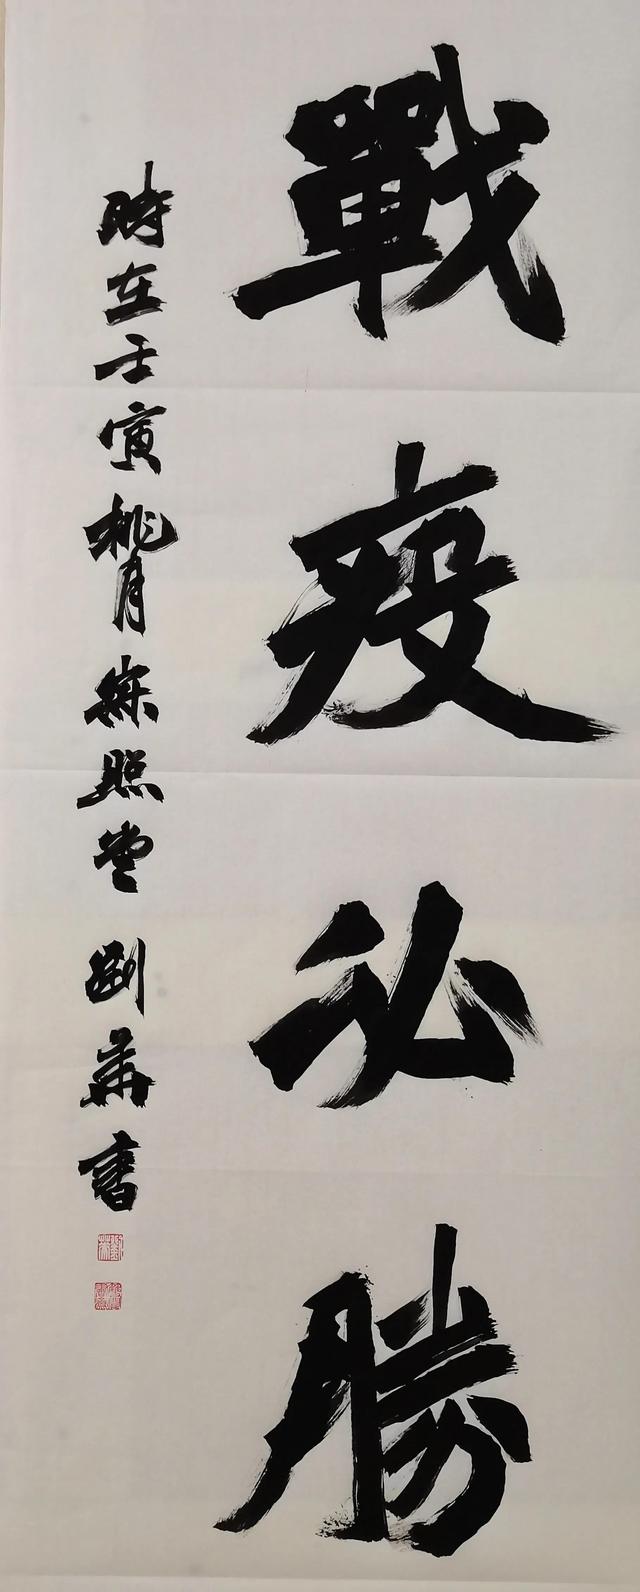 戰疫必勝
時在壬寅桃月寐照堂劉萧書